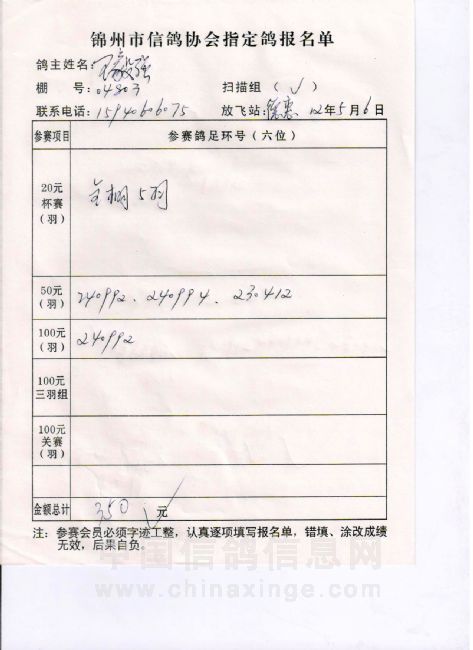 锦州市信鸽协会指定鸽报名单
鸽主姓名: 王毅强
棚 号: 04803 扫描组 (√)
联系电话: 15940606075 放飞站: 德惠 12年5月6日
参赛项目 参赛鸽足环号(六位)
20元
杯赛
(羽)
全棚5羽
50元
(羽)
240992、240994、230412
100元
(羽)
240992
100元
三羽组
100元
关赛
(羽)
金额总计 350 元
注: 参赛会员必须字迹工整，认真逐项填写报名单，错填、涂改成绩
无效，后果自负。
中国信鸽信息网
www.chinaxinge.com